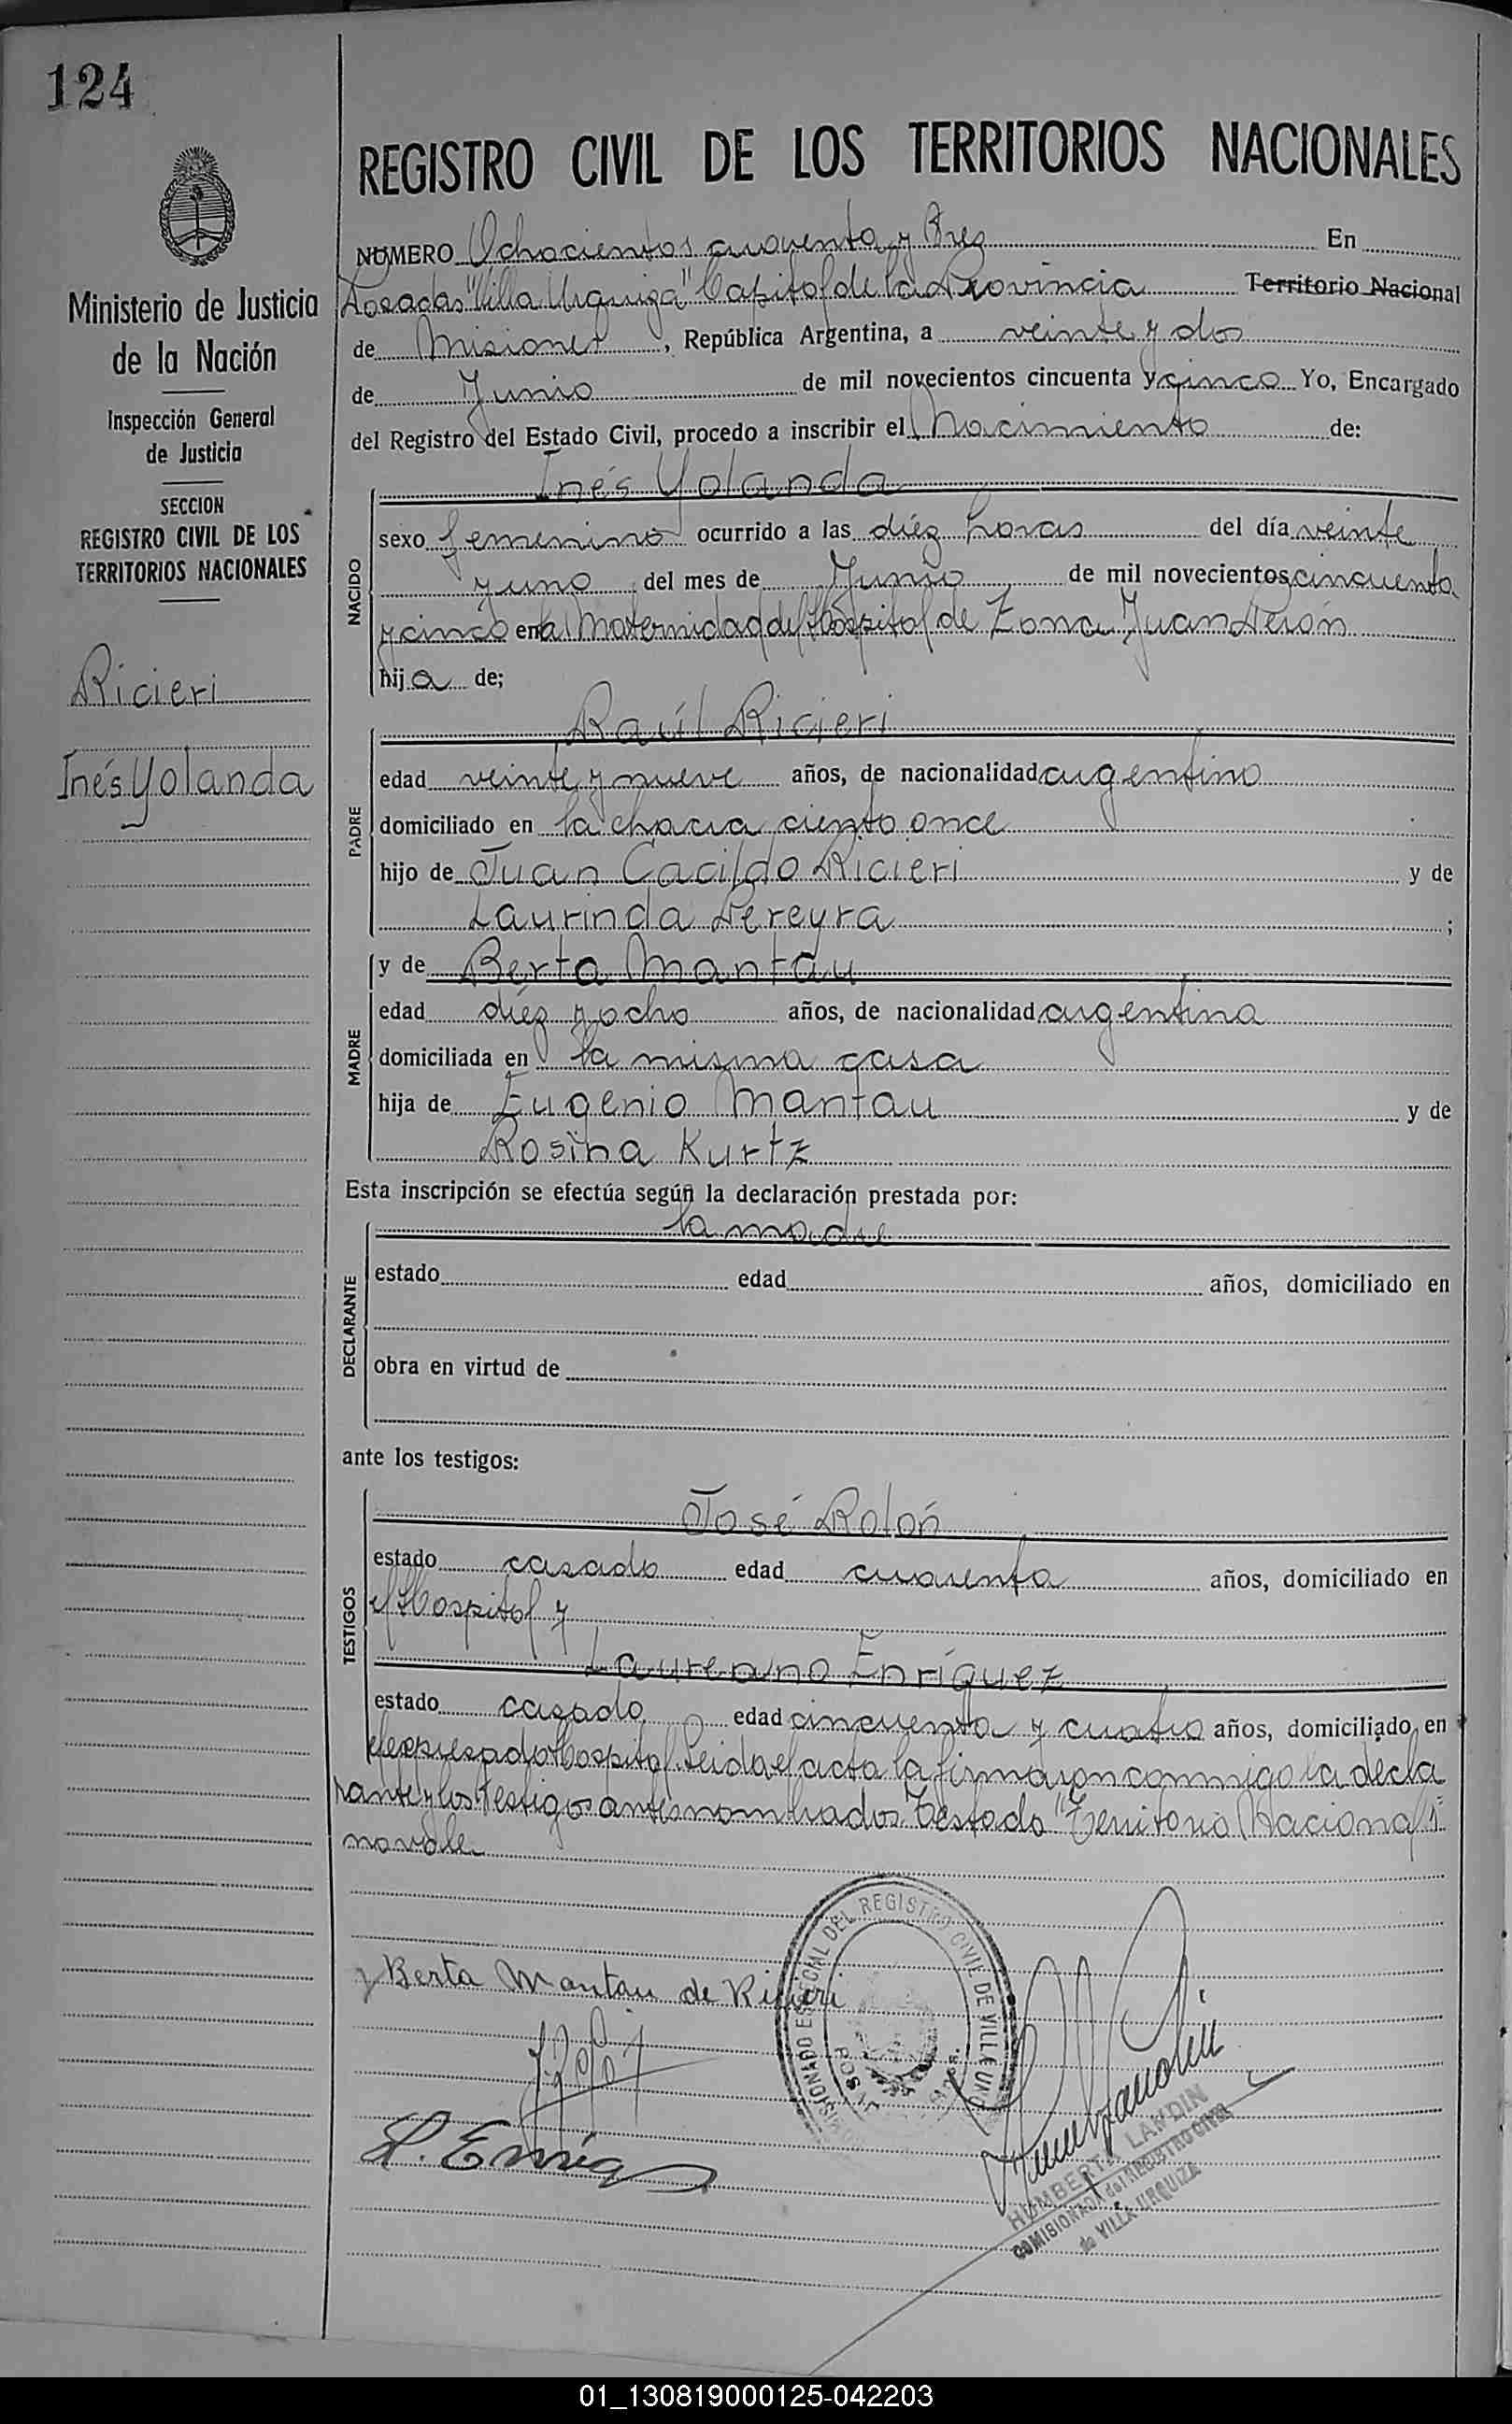 124
REGISTRO CIVIL DE LOS TERRITORIOS NACIONALES
Ministerio de Justicia
de la Nación
Inspección General
de Justicia
SECCION
REGISTRO CIVIL DE LOS
TERRITORIOS NACIONALES
Ricieri
Inés Yolanda
NUMERO Ochocientos cuarenta y tres En
Posadas "Villa Urquiza" Capital de la Provincia Territorio Nacional
de Misiones, República Argentina, a veinte y dos
de Junio de mil novecientos cincuenta y cinco Yo, Encargado
del Registro del Estado Civil, procedo a inscribir el Nacimiento de:
Inés Yolanda
NACIDO
sexo femenino ocurrido a las diéz horas del día veinte
y uno del mes de Junio de mil novecientos cincuenta
y cinco en la Maternidad del Hospital de Zona Juan Perón
hija de;
Raúl Ricieri
PADRE
edad veinte y nueve años, de nacionalidad argentino
domiciliado en la chacra ciento once
hijo de Juan Cacildo Ricieri y de
Laurinda Pereyra ;
y de Berta Mantau
MADRE
edad diéz y ocho años, de nacionalidad argentina
domiciliada en la misma casa
hija de Eugenio Mantau y de
Rosina Kurtz
Esta inscripción se efectúa según la declaración prestada por:
la madre
DECLARANTE
estado edad años, domiciliado en
obra en virtud de
ante los testigos:
José Rolón
TESTIGOS
estado casado edad cuarenta años, domiciliado en
el Hospital y
Laureano Enríquez
estado casado edad cincuenta y cuatro años, domiciliado en
el expresado Hospital. Leida el acta la firmaron conmigo la decla
rante y los testigos antes nombrados. Testado "Territorio Nacional":
no vale
Berta Mantau de Ricieri
COMISIONADO ESPECIAL DEL REGISTRO CIVIL DE VILLA
HUMBERTO LANDIN
COMISIONADA del REGISTRO CIVIL
de VILLA URQUIZA
01_130819000125-042203